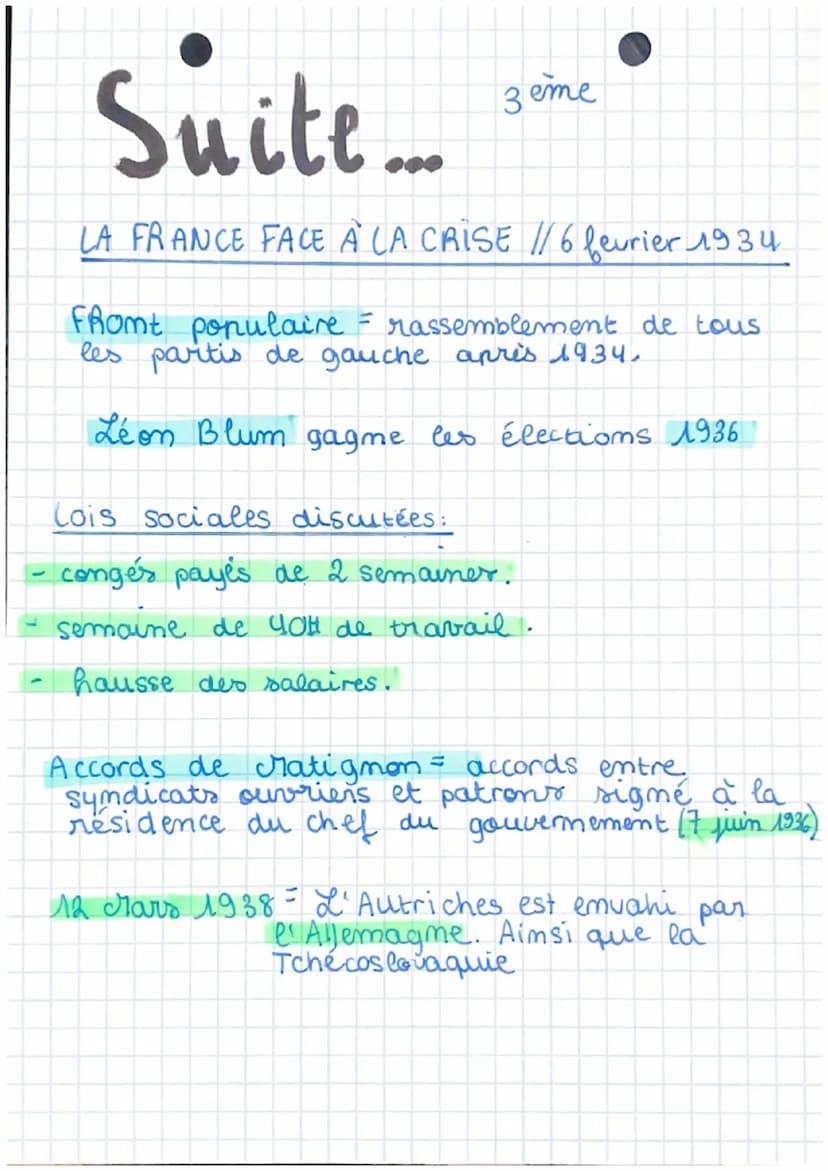 Suite...
3ème
LA FRANCE FACE À LA CRISE // 6 fevrier 1934
FRont populaire = rassemblement de tous
les partis de gauche après 1934.
Léon Blum gagne les élections 1936
Lois sociales discutées:
- congés payés de 2 semaines.
- semaine de 40H de travail.
- hausse des salaires.
Accords de Matignon = accords entre
syndicats ouvriers et patrons signé à la
résidence du chef du gouvernement (7 juin 1936)
12 Mars 1938 = L'Autriches est envahi par
l'Allemagne. Ainsi que la
Tchécoslovaquie